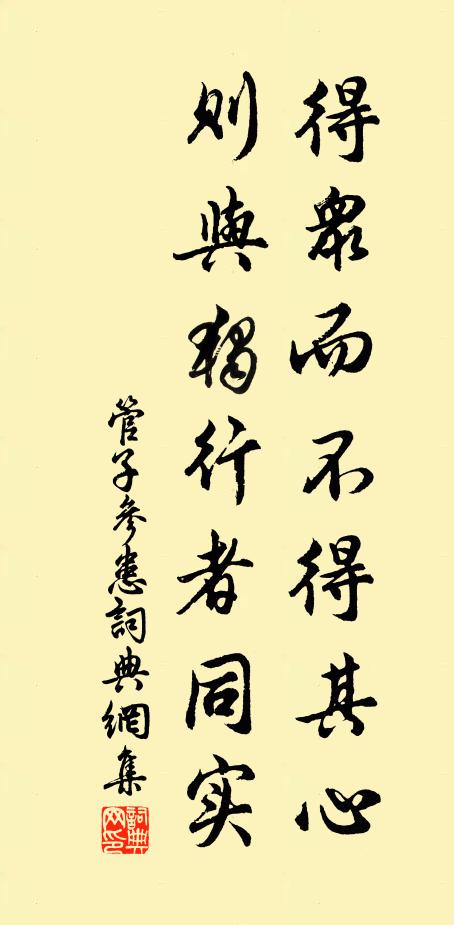 得眾而不得其心
則與獨行者同实
管子參患詞典網集
詞典網印